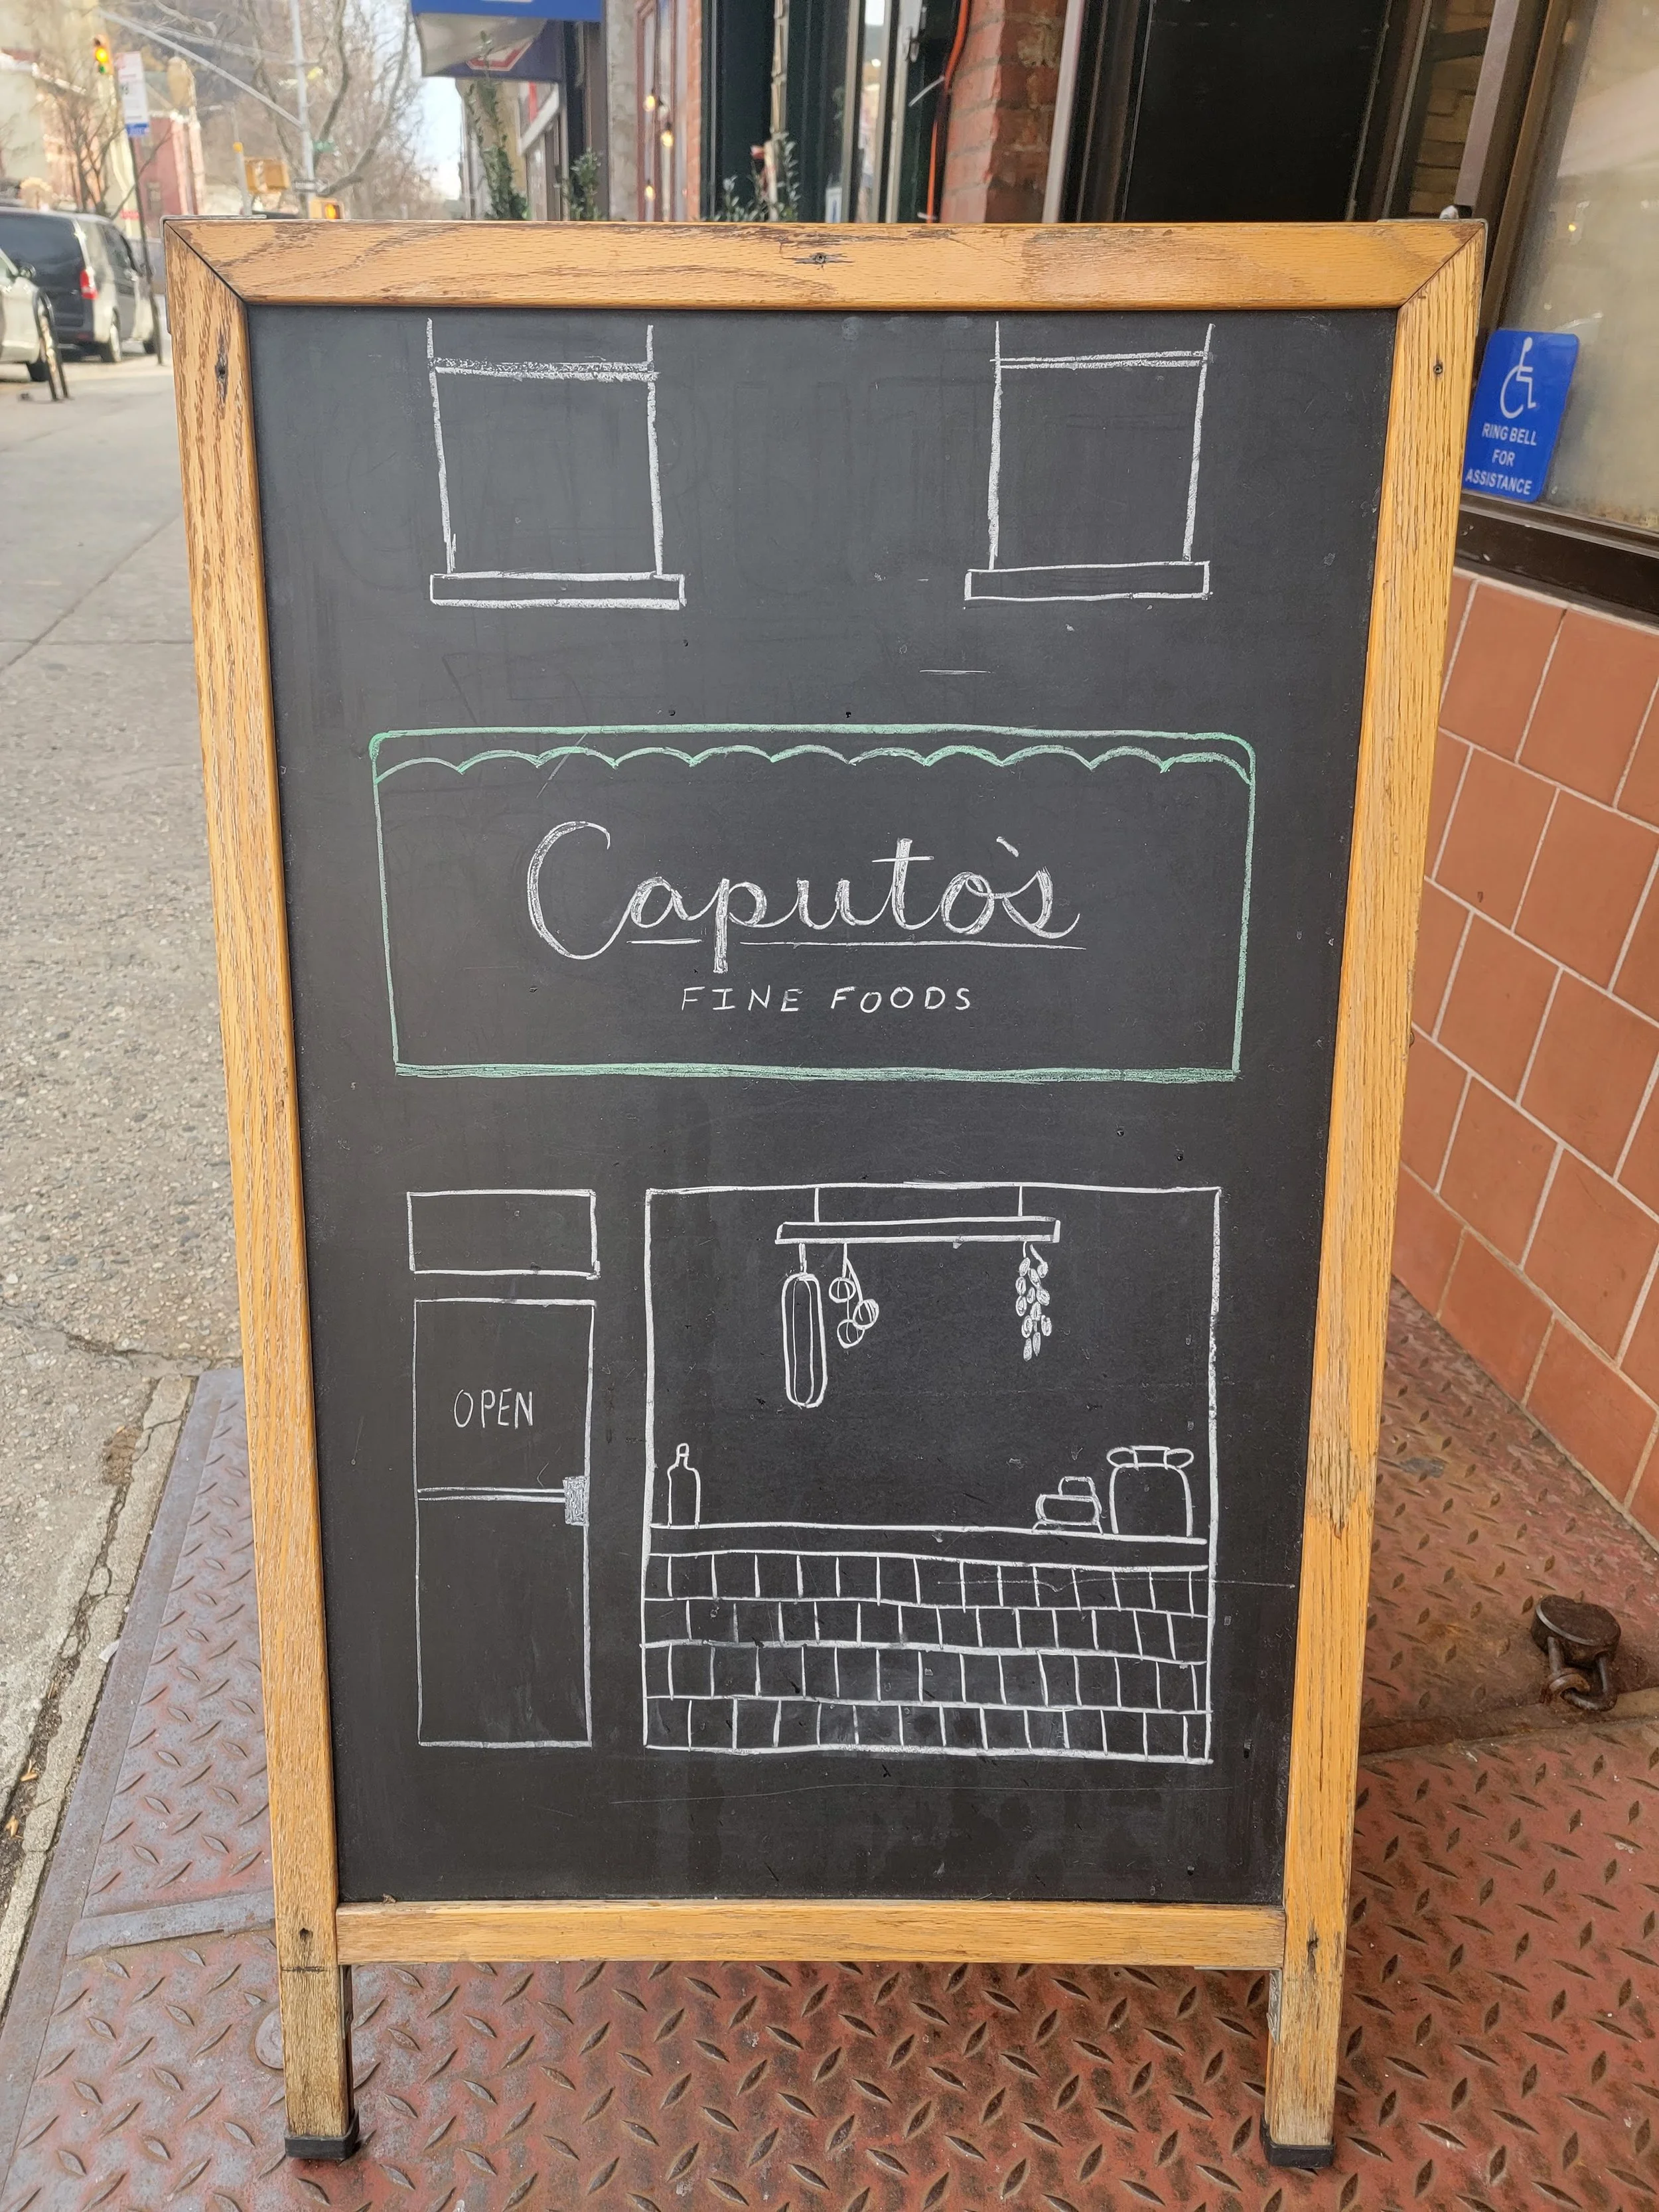 Caputo's
FINE FOODS
OPEN
RING BELL
FOR
ASSISTANCE